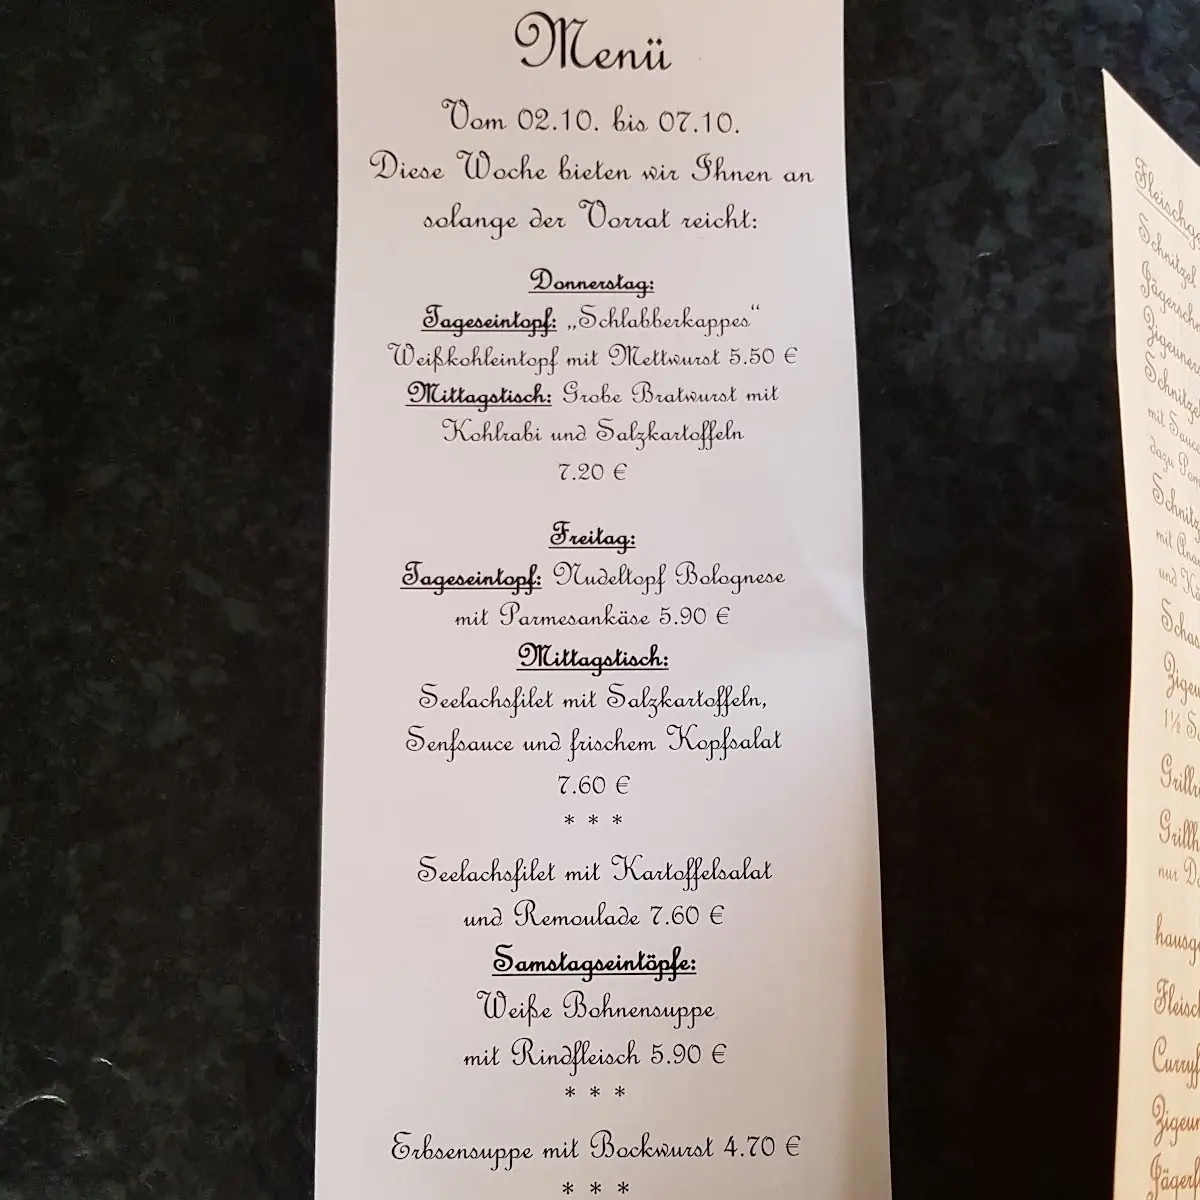 Menü
Vom 02.10. bis 07.10.
Diese Woche bieten wir Ihnen an
solange der Vorrat reicht:
Donnerstag:
Tageseintopf: „Schlabberkappes“
Weißkohleintopf mit Mettwurst 5.50 €
Mittagstisch: Grobe Bratwurst mit
Kohlrabi und Salzkartoffeln
7.20 €
Freitag:
Tageseintopf: Nudeltopf Bolognese
mit Parmesankäse 5.90 €
Mittagstisch:
Seelachsfilet mit Salzkartoffeln,
Senfsauce und frischem Kopfsalat
7.60 €
* * *
Seelachsfilet mit Kartoffelsalat
und Remoulade 7.60 €
Samstagseintöpfe:
Weiße Bohnensuppe
mit Rindfleisch 5.90 €
* * *
Erbsensuppe mit Bockwurst 4.70 €
* * *
Schnitzel
mit Sauce
dazu
mit
und
1½
nur